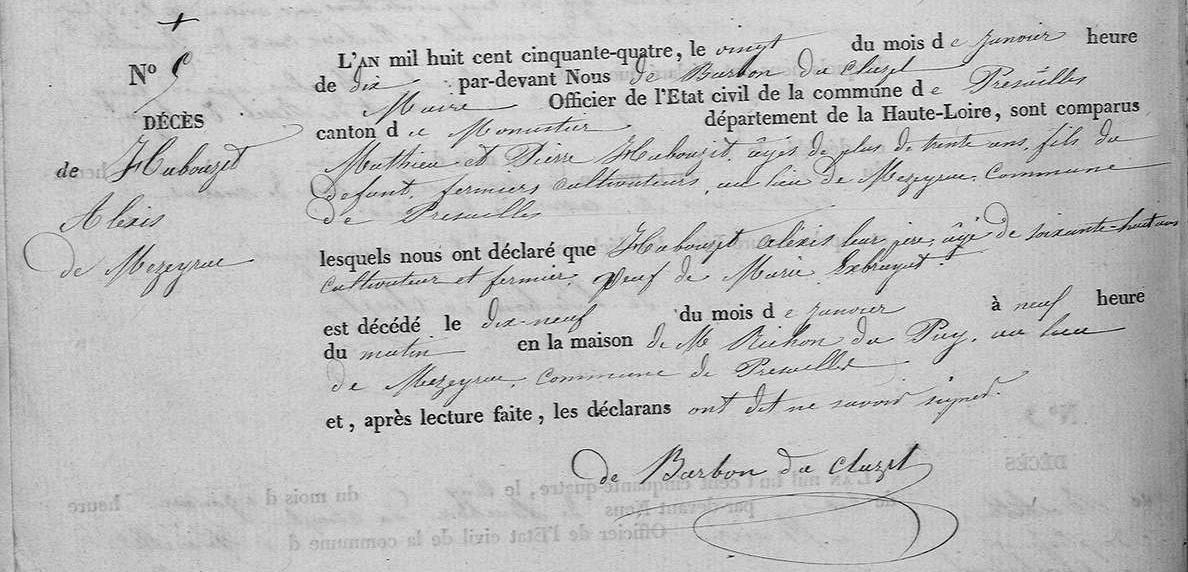 N° 5
DÉCÈS
de Habouzit
Alexis
de Mezeyrac
L'AN mil huit cent cinquante-quatre, le vingt du mois d e janvier heure
de dix par-devant Nous de Barbon du Cluzel
Maire Officier de l'Etat civil de la commune d e Presailles
canton d e Monastier département de la Haute-Loire, sont comparus
Mathieu et Pierre Habouzit, âgés de plus de trente ans, fils du
defunt, fermiers cultivateurs, au lieu de Mezeyrac, Commune
de Presailles
lesquels nous ont déclaré que Habouzit Alexis leur père, âgé de soixante-huit ans
cultivateur et fermier, veuf de Marie Exbrayat.
est décédé le dix-neuf du mois d e janvier à neuf heure
du matin en la maison de Mr Richon du Puy, au lieu
de Mezeyrac, commune de Presailles
et, après lecture faite, les déclarans ont dit ne savoir signer.
de Barbon du Cluzel